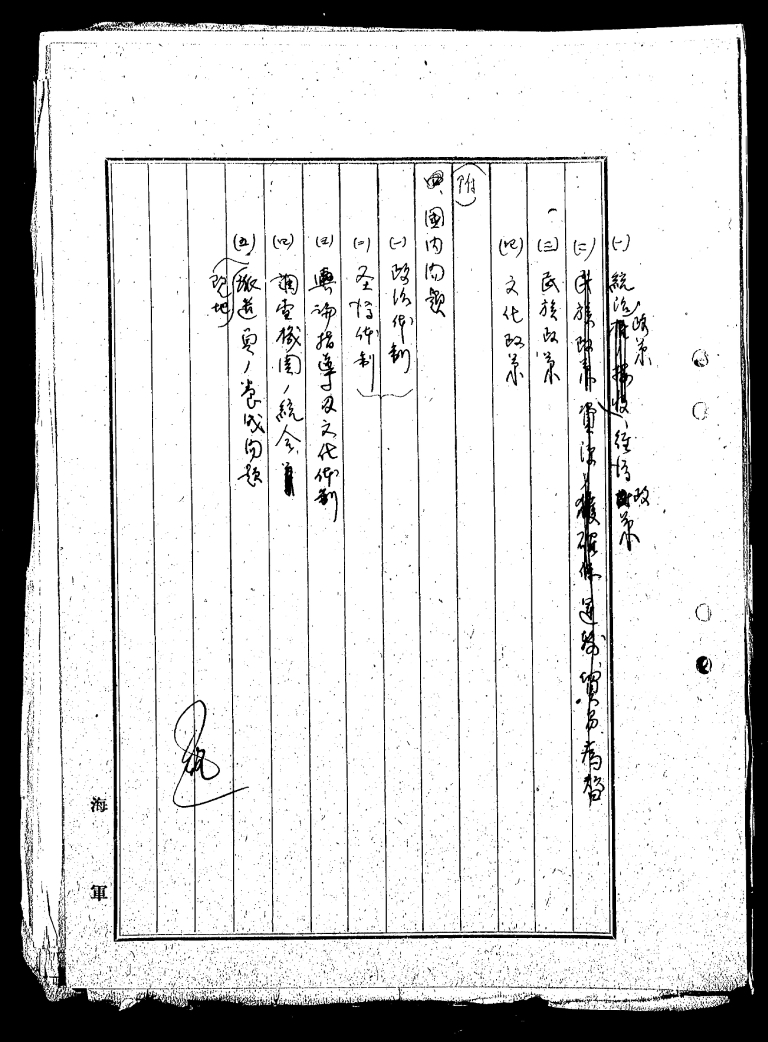 (一) 統治政策、経済政策
(二) 民族政策 資源ノ獲確保 運 貿易 為替
(三) 民族政策
(四) 文化政策
(附)
国内問題
(一) 政治体制
(二) 経済体制
(三) 輿論指導及文化体制
(四) 調査機関ノ統合
(五) 派遣員ノ養成問題
現地
海軍